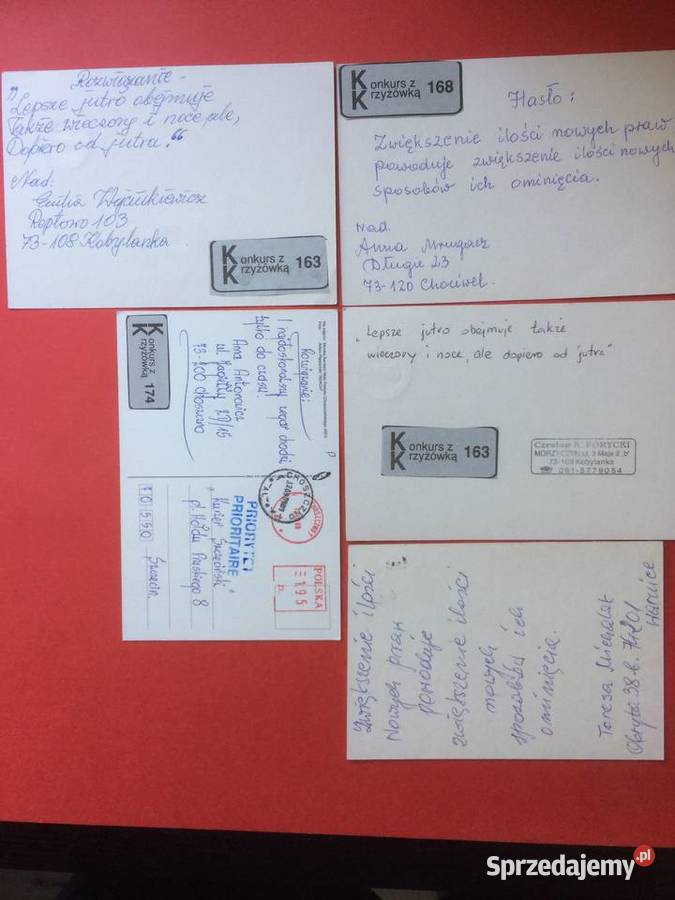 Rozwiązanie -
„Lepsze jutro obejmuje
także wieczory i noce, ale,
Dopiero od jutra."
Nad:
Emilia
Reptowo 103
73-108 Kobylanka
Konkurs z
Krzyżówką 163
Konkurs z
Krzyżówką 168
Hasło:
Zwiększenie ilości nowych praw
powoduje zwiększenie ilości nowych
sposobów ich ominięcia.
Nad.
Anna Mrugacz
Długie 23
73-120 Chociwel.
Konkurs z
Krzyżówką 174
Rozwiązanie:
I najdoskonalszy zegar chodzi
tylko do czasu.
Anna Antonowicz
73-200 Choszczno
CHOSZCZNO
PRIORYTET
PRIORITAIRE
POLSKA
195
zł
"Kurier Szczeciński"
pl. Hołdu Pruskiego 8
70-550 Szczecin
„Lepsze jutro obejmuje także
wieczory i noce, ale dopiero od jutra"
Konkurs z
Krzyżówką 163
Czesław R. PORYCKI
MORZYCZYN ul. 3 Maja 2 b
73-108 Kobylanka
091-5779054
Zwiększenie ilości
Nowych praw
powoduje
zwiększenie ilości
nowych
sposobów ich
ominięcia.
Teresa Michalak
Obryta 38-b.
Warnice
Sprzedajemy.pl